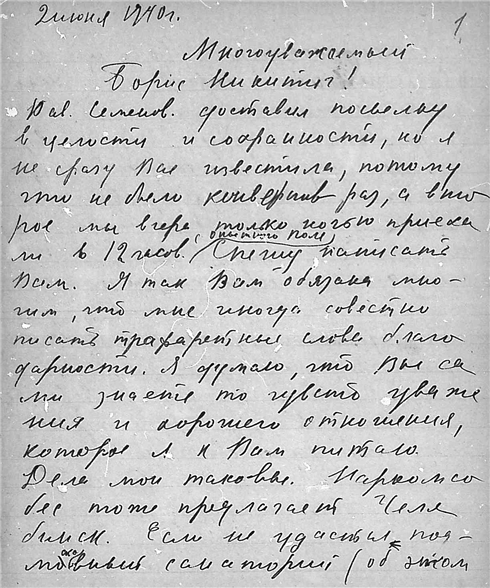 2 июня 1940 г.
1
Многоуважаемый
Борис Никитич!
Пав. Семенов. доставил посылку
в целости и сохранности, но я
не сразу Вас известила, потому
что не было конвертов раз, а вто
рое мы вчера только ночью приеха
ли в 12 часов. (с опытного поля) Спешу написать
Вам. Я так Вам обязана мно-
гим, что мне иногда совестно
писать трафаретные слова благо
дарности. Я думаю, что Вы са
ми знаете то чувство уваже
ния и хорошего отношения,
которое я к Вам питаю.
Дела мои таковы. Наркомсо
бес тоже предлагает Челя
бинск. Если не удастся под-
московный санаторий (об этом